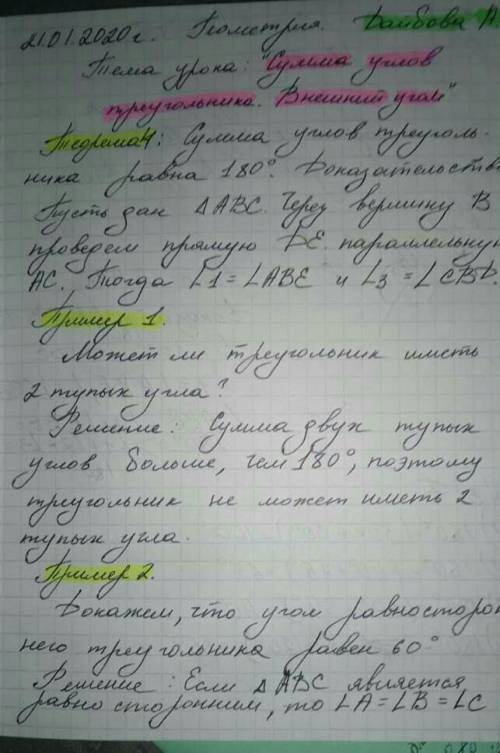 21.01.2020г. Геометрия. Даибова
Тема урока: "Сумма углов
треугольника. Внешний угол"
Теорема 4: Сумма углов треуголь-
ника равна 180°. Доказательств
Пусть дан ΔABC. Через вершину B
проведем прямую DE параллельную
AC. Тогда ∠1=∠ABE и ∠3=∠CBD.
Пример 1.
Может ли треугольник иметь
2 тупых угла?
Решение: Сумма двух тупых
углов больше, чем 180°, поэтому
треугольник не может иметь 2
тупых угла.
Пример 2.
Докажем, что угол равносторон
него треугольника равен 60°
Решение: Если ΔABC является
равносторонним, то ∠A=∠B=∠C